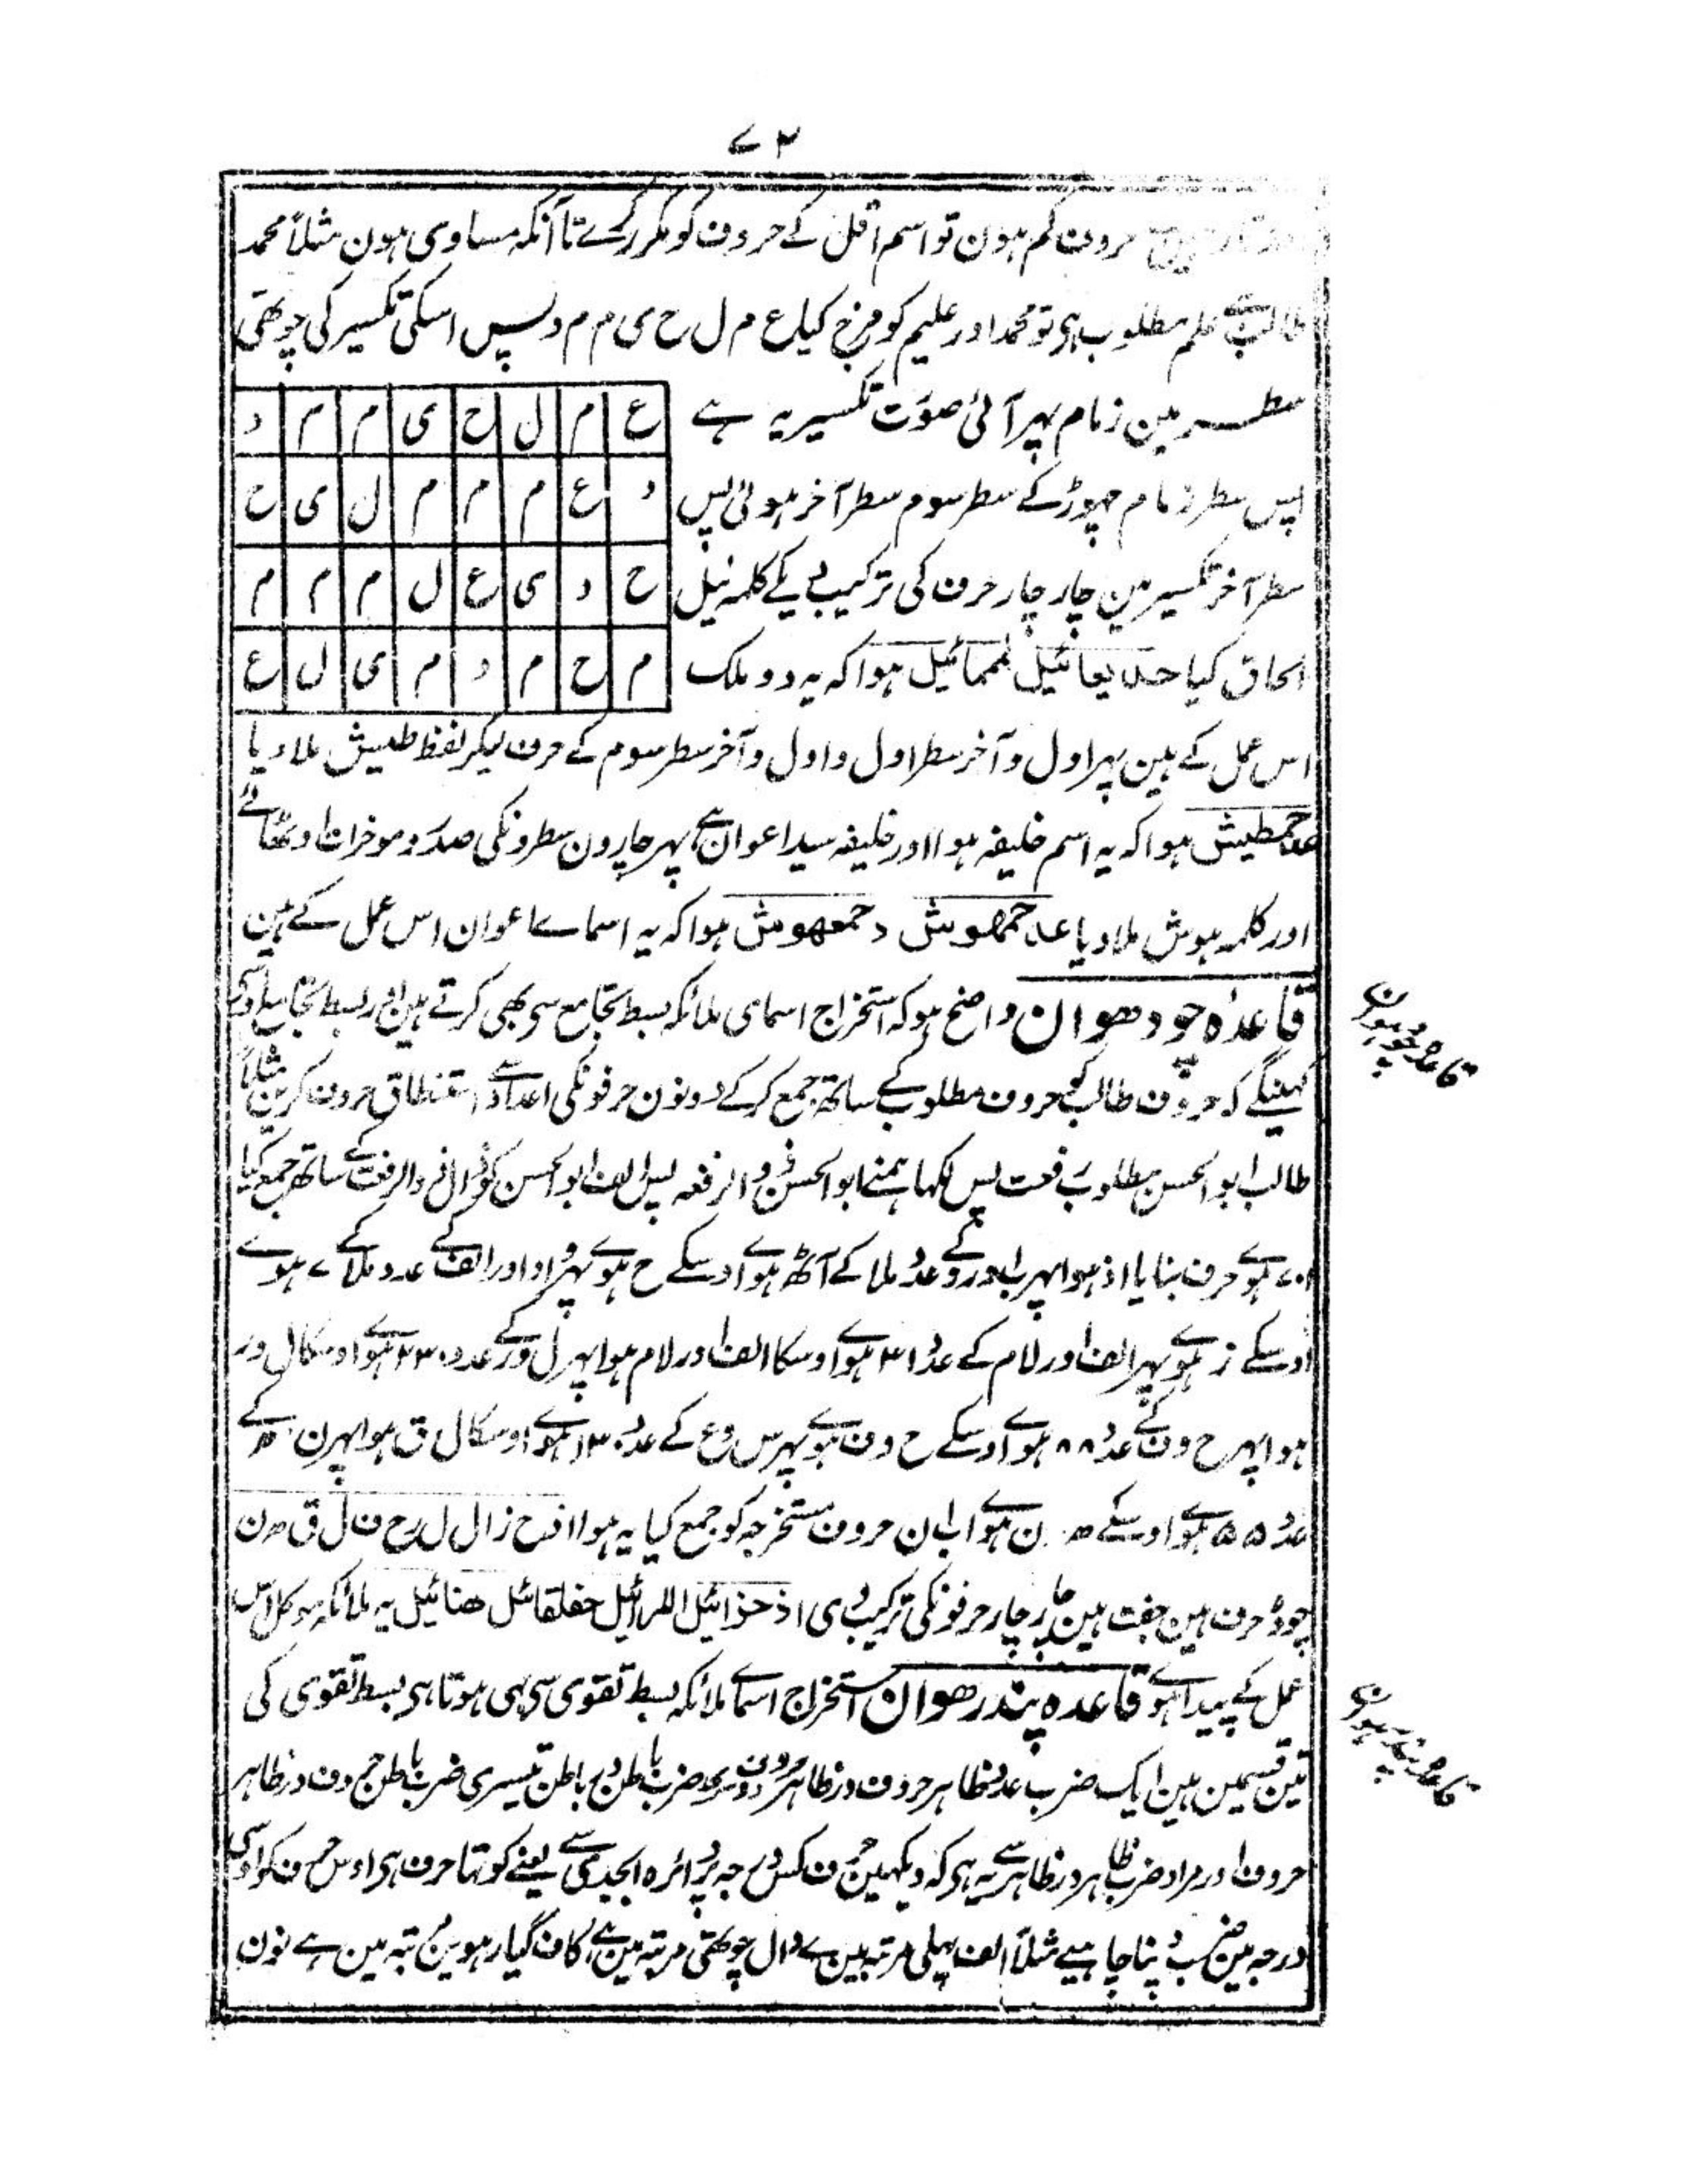 ۷۲
حروف کم ہون تو اسم اقل کے حروف کو مکرر کرے تا آنکہ مساوی ہون مثلاً محمد
طالب ہے علم مطلوب ہی تو محمد اور علیم کو مزج کیا ع م ل ح ی م م د پس اسکی تکسیر کی چوتھی
سطر مین زمام پہر آئی صورت تکسیر یہ ہے
ع م ل ح ی م م د
پس سطر زمام چہوڑکے سطر سوم سطر آخر ہوئی پس
د ع م م م ل ی ح
سطر آخر تکسیر مین چار چار حرف کی ترکیب دیکے کلمہ ئیل
ح د ی ع ل م م م
الحاق کیا حدیعائیل لمممائیل ہوا کہ یہ دو ملک
م ح م د م ی ل ع
اس عمل کے ہین پہر اول و آخر سطر اول و اول و آخر سطر سوم کے حرف لیکر لفظ طیش ملا دیا
عدحمطیش ہوا کہ یہ اسم خلیفہ ہوا اور خلیفہ سید اعوان ہے پہر چارون سطرونکی صدر و موخرات اوٹھائے
اور کلمہ ہوش ملا دیا عدحمهوش دحمعهوش ہوا کہ یہ اسماے اعوان اس عمل کے ہین
قاعدہ چودھوان واضح ہو کہ استخراج اسمای ملائکہ بسط تجامع سی بھی کرتے ہین اور بسط تجامع اوسی
کہینگے کہ حروف طالب کو حروف مطلوب کے ساتھ جمع کرکے دونون حرفونکی اعداد سے استنطاق حروف کرین مثلاً
طالب ابو الحسن مطلوب رفعت پس لکہا ہمنے ابو الحسن و الرفعہ پس الف ابو الحسن کو ذال کے ساتھ جمع کیا
۷۰۱ ہوے حرف بنایا اذ ہوا پہر ب اور و کے عدد ملا کے آٹھ ہوے اوسکے ح ہوے پہر و اور الف کے عدد ملا کے ۷ ہوے
اوسکے ز ہوے پہر الف اور لام کے عدد ۳۱ ہوے اوسکا الف اور لام ہوا پہر ل ور کے عدد ۲۳۰ ہوے اوسکا ل ور
ہوا پہر ح و ف کے عدد ۸۸ ہوے اوسکے ح و ف ہوے پہر س و ع کے عدد ۱۳۰ ہوے اوسکا ل ق ہوا پہر ن ہ کے
عدد ۵۵ ہوے اوسکے ہ ن ہوے اب ان حروف مستخرجہ کو جمع کیا یہ ہوا ا ذ ح ز ا ل ل ر ح ف ل ق ہ ن
چودہ حرف ہین جفت ہین چار چار حرفونکی ترکیب دی اذحزائیل اللرائیل حفلقائل هنائیل یہ ملائکہ موکل اس
عمل کے پیدا ہوے قاعدہ پندرھوان استخراج اسماے ملائکہ بسط تقوی سی بہی ہوتا ہی بسط تقوی کی
تین قسمین ہین ایک ضرب عدد ظاہر حروف در ظاہر حروف دوسری ضرب باطن در باطن تیسری ضرب باطن حروف در ظاہر
حروف اور مراد ضرب ظاہر در ظاہر سے یہ ہی کہ دیکہین حرف کس درجہ پر دائرہ ابجدی سے یعنے کونسا حرف ہی اوس حرف کو اوسی
درجہ مین ضرب دینا چاہیے مثلاً الف پہلی مرتبہ مین ہے دال چوتھی مرتبہ مین ہے کاف گیارہوین مرتبہ مین ہے نون
قاعدہ چودہوان
قاعدہ پندرہوان